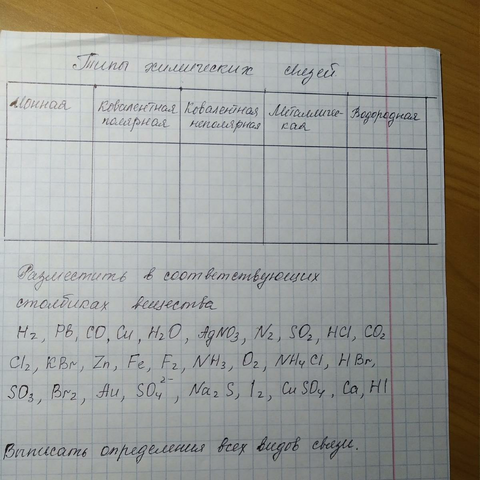 Типы химических связей
Ионная Ковалентная полярная Ковалентная неполярная Металличе-кая Водородная
Разместить в соответствующих
столбиках вещества
H2, Pb, CO, Cu, H2O, AgNO3, N2, SO2, HCl, CO2
Cl2, KBr, Zn, Fe, F2, NH3, O2, NH4Cl, HBr,
SO3, Br2, Au, SO4 2-, Na2S, I2, CuSO4, Ca, HI
Выписать определения всех видов связи.